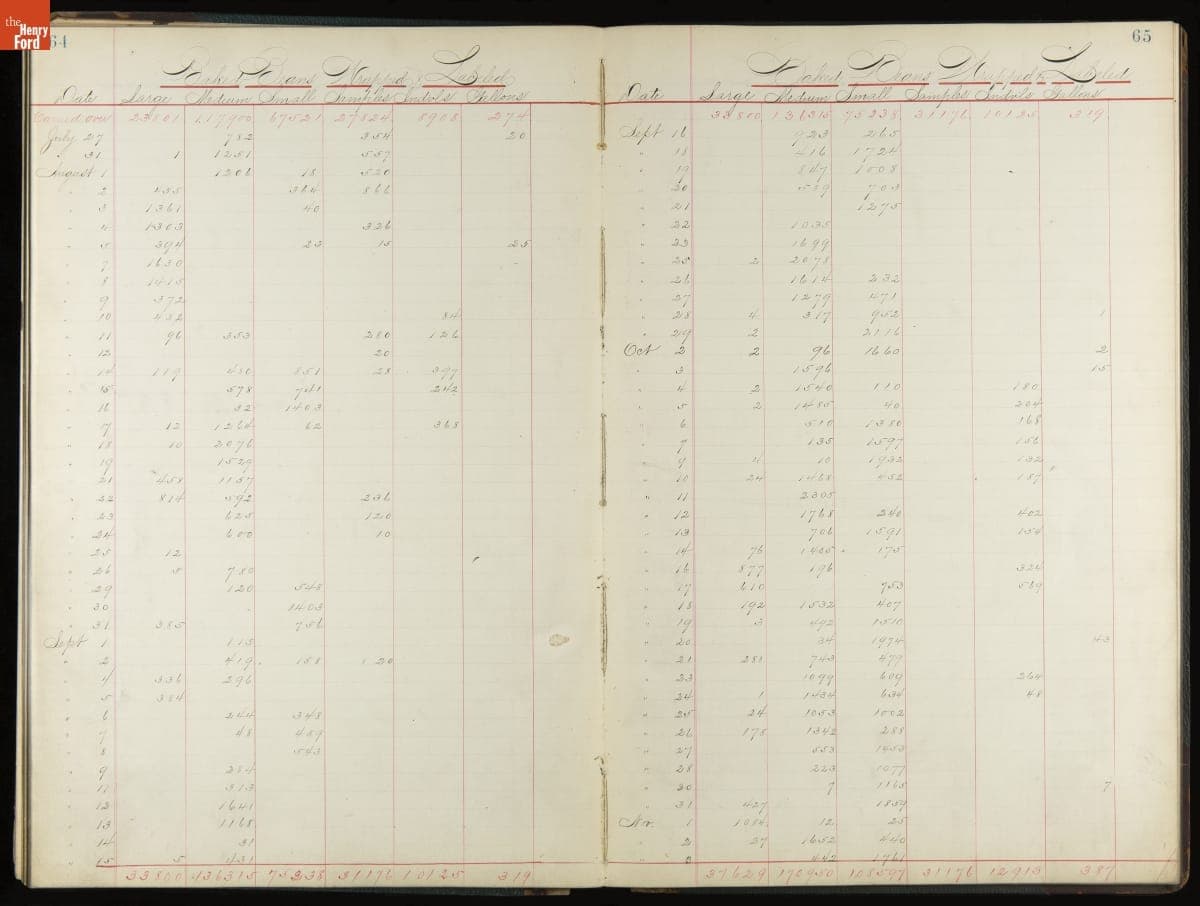 the Henry Ford
64
Baked Beans Wrapped & Labeled
Date Large Medium Small Samples Indvls Gallons
Carried over 23801 117900 67521 27824 8908 274
July 27 782 354 20
" 31 1 1251 557
August 1 1206 18 520
" 2 455 364 866
" 3 1361 40
" 4 1303 326
" 5 394 23 15 25
" 7 1630
" 8 1415
" 9 372
" 10 432 84
" 11 96 353 280 126
" 12 20
" 14 119 430 851 28 397
" 15 578 741 242
" 16 32 1403
" 17 12 1264 62 368
" 18 10 2076
" 19 1529
" 21 458 1157
" 22 814 592 236
" 23 625 120
" 24 600 10
" 25 12
" 26 5 780
" 29 120 548
" 30 1403
" 31 385 756
Sept 1 113
" 2 419 158 120
" 4 336 296
" 5 384
" 6 244 348
" 7 48 459
" 8 543
" 9 284
" 11 313
" 12 1641
" 13 1168
" 14 31
" 15 5 431
33800 136315 75238 31176 10125 319
65
Baked Beans Wrapped & Labeled
Date Large Medium Small Samples Indvls Gallons
33800 136315 75238 31176 10125 319
Sept 16 923 265
" 18 416 1724
" 19 847 1008
" 20 559 703
" 21 1275
" 22 1035
" 23 1699
" 25 2 2078
" 26 1614 232
" 27 1279 471
" 28 4 317 952 1
" 29 2 2116
Oct 2 2 96 1660 2
" 3 1596 15
" 4 2 1540 110 180
" 5 2 1485 40 204
" 6 510 1380 168
" 7 135 1597 156
" 9 4 10 1932 132
" 10 24 1468 452 187
" 11 2305
" 12 1768 240 402
" 13 706 1591 154
" 14 76 1405 175
" 16 877 196 324
" 17 610 753 569
" 18 192 1532 407
" 19 3 492 1510
" 20 34 1974 43
" 21 281 743 479
" 23 1099 609 264
" 24 1 1434 634 48
" 25 24 1053 1002
" 26 175 1342 288
" 27 553 1453
" 28 223 1077
" 30 7 1165 7
" 31 427 1859
Nov. 1 1084 12 25
" 2 37 1652 440
" 3 442 1761
37629 170950 108597 31176 12913 387